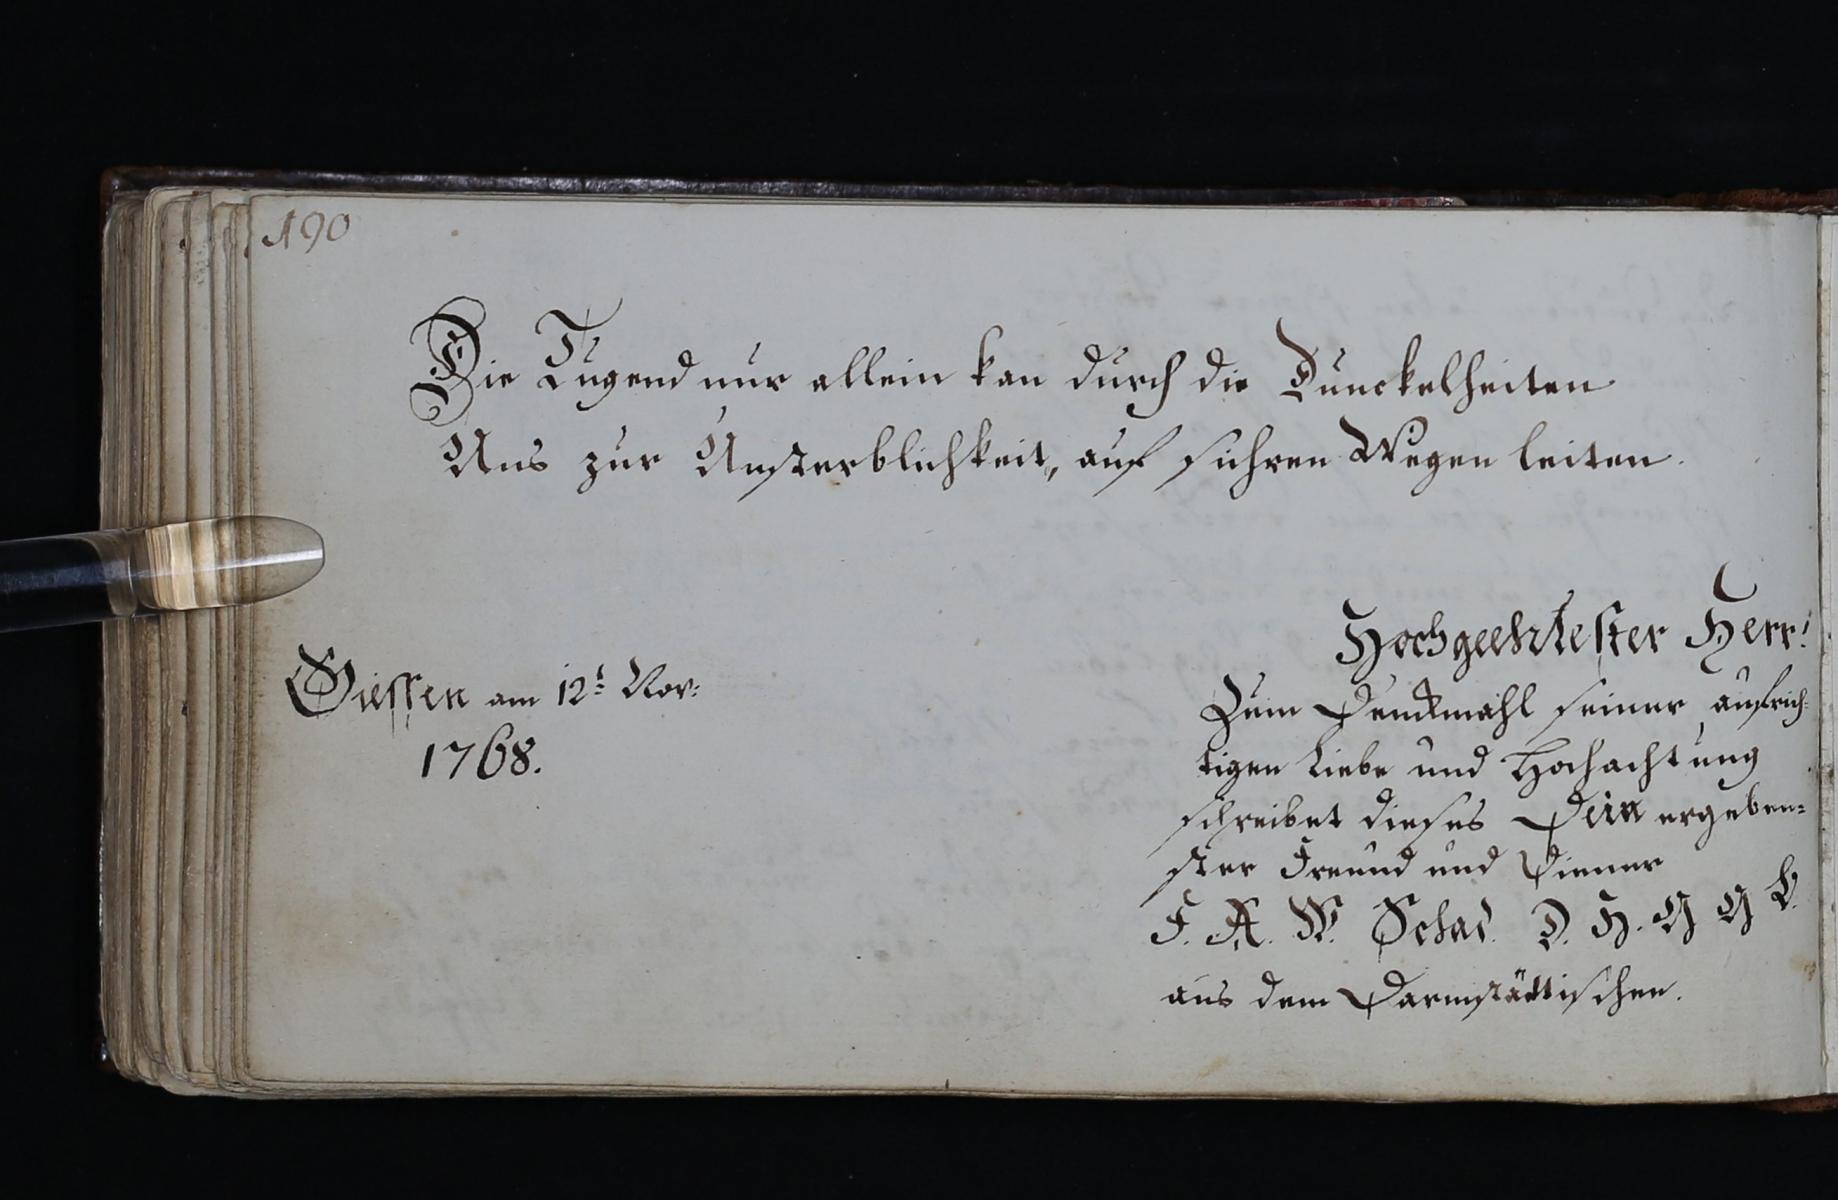 190
Die Tugend nur allein kan durch die Dunckelheiten
Uns zur Unsterblichkeit, auf sichren Wegen leiten.
Hochgeehrtester Herr!
Giessen am 12t Nov:
1768.
Zum Denckmahl seiner aufrich-
tigen Liebe und Hochachtung
schreibet dieses Dein ergeben-
ster Freund und Diener
F. A. W. Schad. D. H. G G B.
aus dem Darmstättischen.